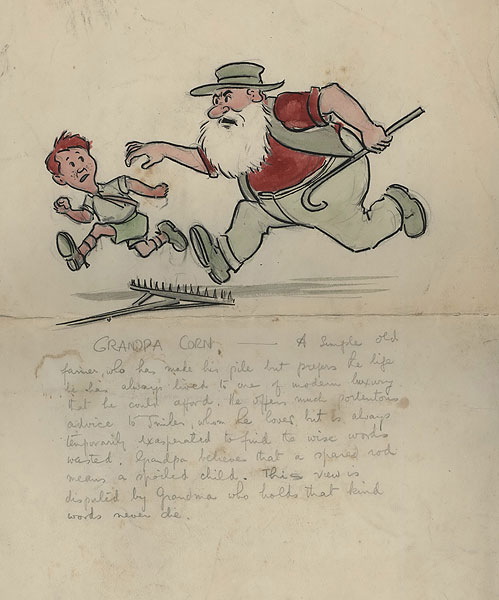 GRANDPA CORN — A simple old
farmer, who has made his pile but prefers the life
he has always lived to one of modern luxury
that he could afford. He offers much portentous
advice to Smiler, whom he loves, but is always
temporarily exasperated to find his wise words
wasted. Grandpa believes that a spared rod
means a spoiled child. This view is
disputed by Grandma who holds that kind
words never die.